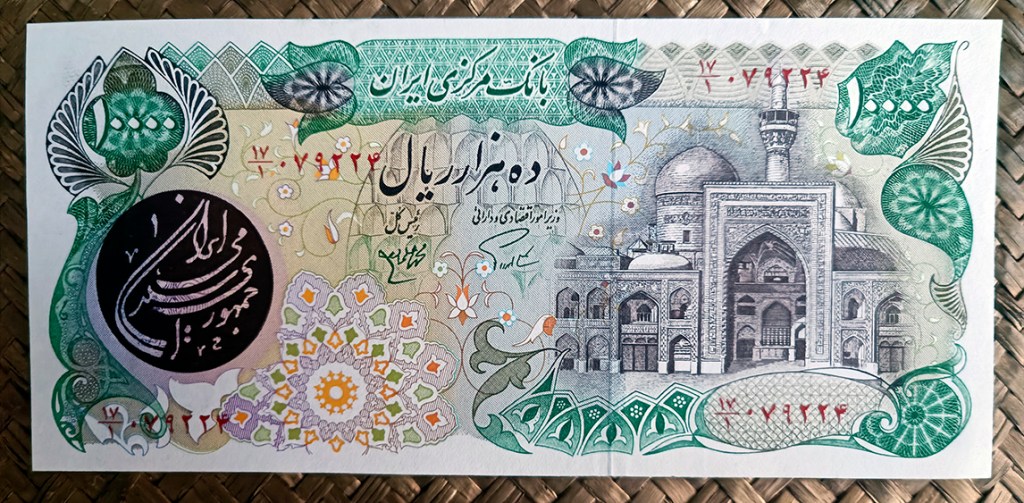 بانک مرکزی ایران
۱۷/۱ ۰۷۹۲۲۴
۱۰۰۰۰
۱۰۰۰۰
۱۷/۱ ۰۷۹۲۲۴
ده هزار ریال
وزیر امور اقتصادی و دارائی
رئیس کل
جمهوری اسلامی ایران
۱۷/۱ ۰۷۹۲۲۴
۱۷/۱ ۰۷۹۲۲۴